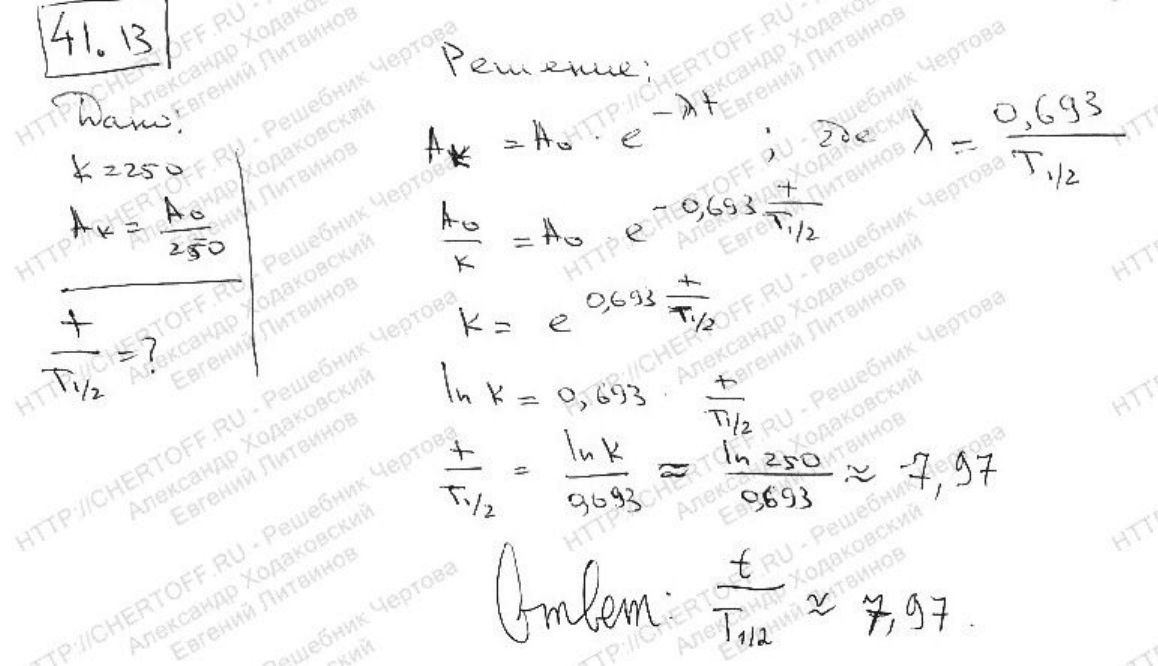 41.13
Дано:
k = 250
A_k = A_0 / 250
t / T_{1/2} = ?
Решение:
A_k = A_0 · e^{-λt} ; где λ = 0,693 / T_{1/2}
A_0 / k = A_0 · e^{-0,693 t / T_{1/2}}
k = e^{0,693 t / T_{1/2}}
ln k = 0,693 · t / T_{1/2}
t / T_{1/2} = ln k / 0,693 ≈ ln 250 / 0,693 ≈ 7,97
Ответ: t / T_{1/2} ≈ 7,97.
HTTP://CHERTOFF.RU - Решебник Чертова
Александр Ходаковский
Евгений Литвинов